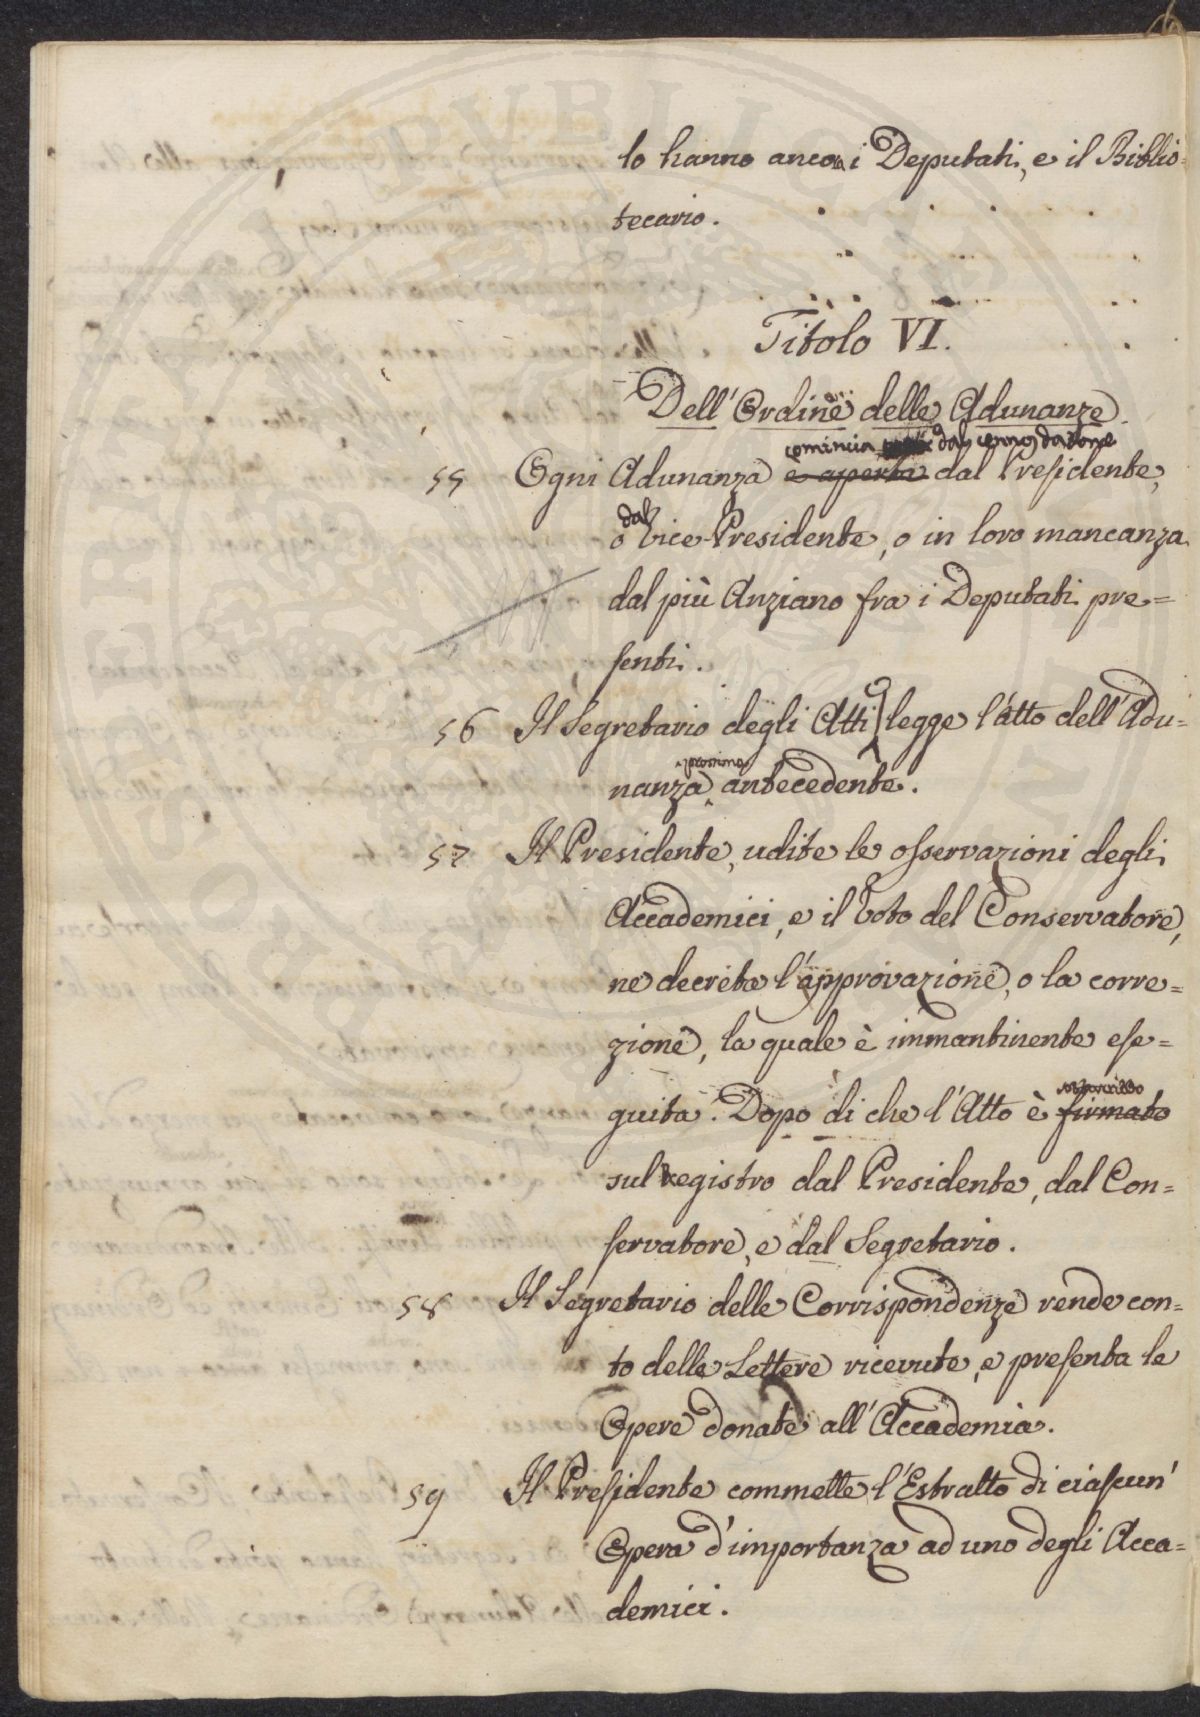 lo hanno ancora i Deputati, e il Biblio=
tecario.
Titolo VI.
Dell'Ordine delle Adunanze.
comincia dal cenno datone
55 Ogni Adunanza è aperta dal Presidente,
dal
o Vice-Presidente, o in loro mancanza
dal più Anziano fra i Deputati pre=
senti.
56 Il Segretario degli Atti legge l'atto dell'Adu=
prossima
nanza antecedente.
57 Il Presidente, udite le osservazioni degli
Accademici, e il Voto del Conservatore,
ne decreta l'approvazione, o la corre=
zione, la quale è immantinente ese=
guita. Dopo di che l'Atto è firmato
sul Registro dal Presidente, dal Con=
servatore, e dal Segretario.
58 Il Segretario delle Corrispondenze rende con=
to delle Lettere ricevute, e presenta le
Opere donate all'Accademia.
59 Il Presidente commette l'Estratto di ciascun'
Opera d'importanza ad uno degli Acca=
demici.